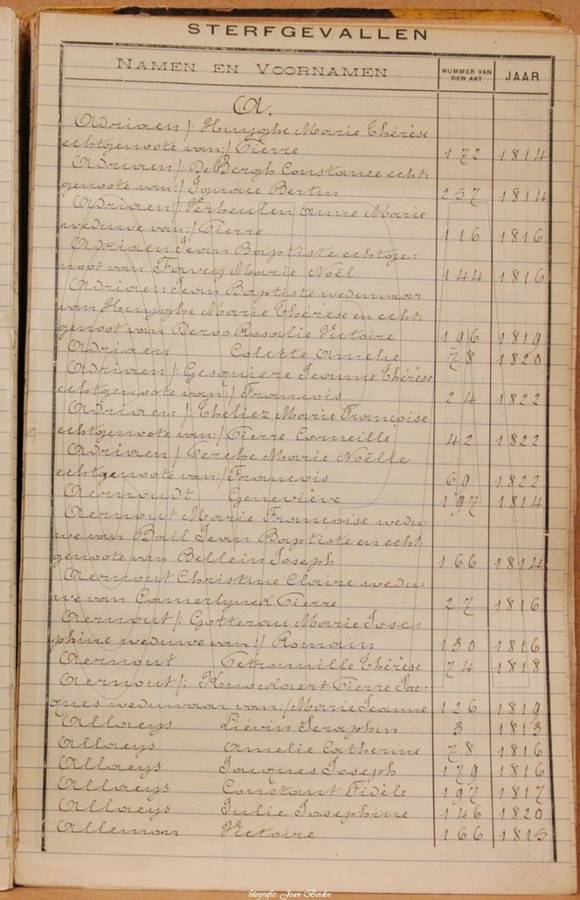 STERFGEVALLEN
NAMEN EN VOORNAMEN NUMMER VAN DEN AKT JAAR
A.
Adriaen /: Huyghe Marie Thérèse
echtgenoote van :/ Pierre 172 1814
Adriaen /: De Bergh Constance echt-
genoote van :/ Ignace Bertin 257 1814
Adriaen /: Verheulen Anne Marie
weduwe van :/ Pierre 116 1816
Adriaen Jean Baptiste echtge-
noot van Favey Marie Noël 144 1816
Adriaen Jean Baptiste weduwaar
van Huyghe Marie Thérèse en echt-
genoot van Deroo Rosalie Victoire 196 1819
Adriaen Colette Amelie 78 1820
Adriaen /: Gesquiere Jeanne Thérèse
echtgenoote van :/ François 24 1822
Adriaen /: Theliez Marie Françoise
echtgenoote van :/ Pierre Corneille 42 1822
Adriaen /: Cerche Marie Noëlle
echtgenoote van :/ François 69 1822
Aernoudt Geneviève 197 1814
Aernout Marie Françoise wedu-
we van Bail Jean Baptiste en echt-
genoote van Bellein Joseph 166 1814
Aernout Christine Claire wedu-
we van Camerlynck Pierre 27 1816
Aernout /: Gotterau Marie Josep-
phine weduwe van :/ Romain 130 1816
Aernout Petronnille Thérèse 74 1818
Aernout /: Knockaert Pierre Jac-
ques weduwaar van :/ Marie Jeanne 126 1819
Allaeys Liévin Seraphin 3 1813
Allaeys Amelie Catherine 78 1816
Allaeys Jacques Joseph 179 1816
Allaeys Constant Fidèle 197 1817
Allaeys Julie Josephine 146 1820
Allemon Victoire 166 1815
fotografie: Joan Boidin